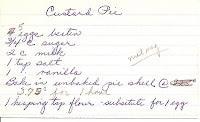 Custard Pie
5 eggs beaten
3/4 c. sugar
2 c milk
1 tsp salt
1 " vanilla
Bake in unbaked pie shell @
375° for 1 hour
1 heaping tsp flour - substitute for 1 egg